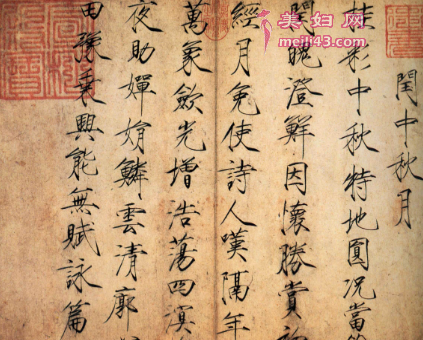 閏中秋月
桂彩中秋特地圓況當
閏魄澄鮮因懷勝賞初
經月免使詩人嘆隔年
萬象斂光增浩蕩四溟
夜助嬋娟鱗雲清廓
田豫乘興能無賦詠篇
美妇网
www.meili43.com